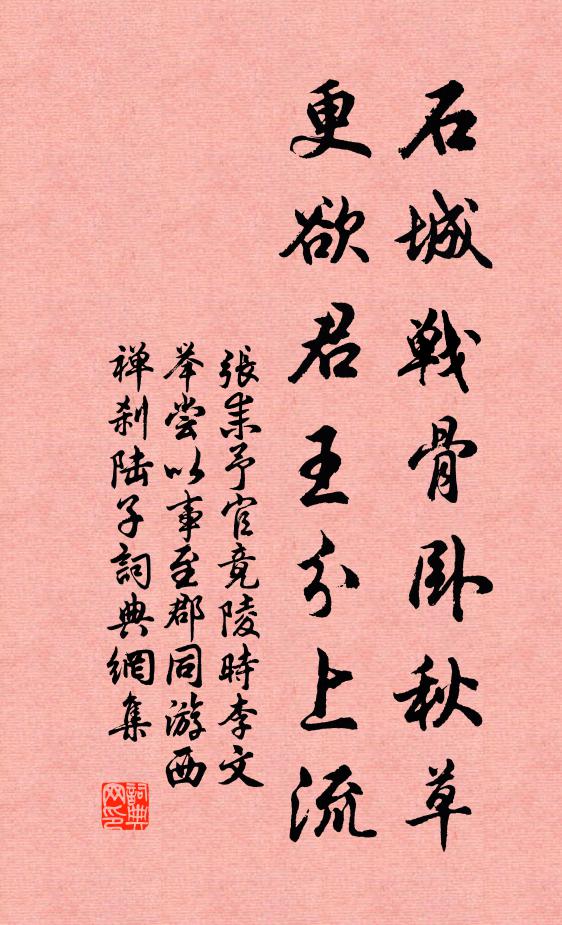 石城戰骨卧秋草
更欲君王分上流
張耒予官竟陵時李文
举尝以事至郡同游西
禅刹陆子詞典網集
詞典网印